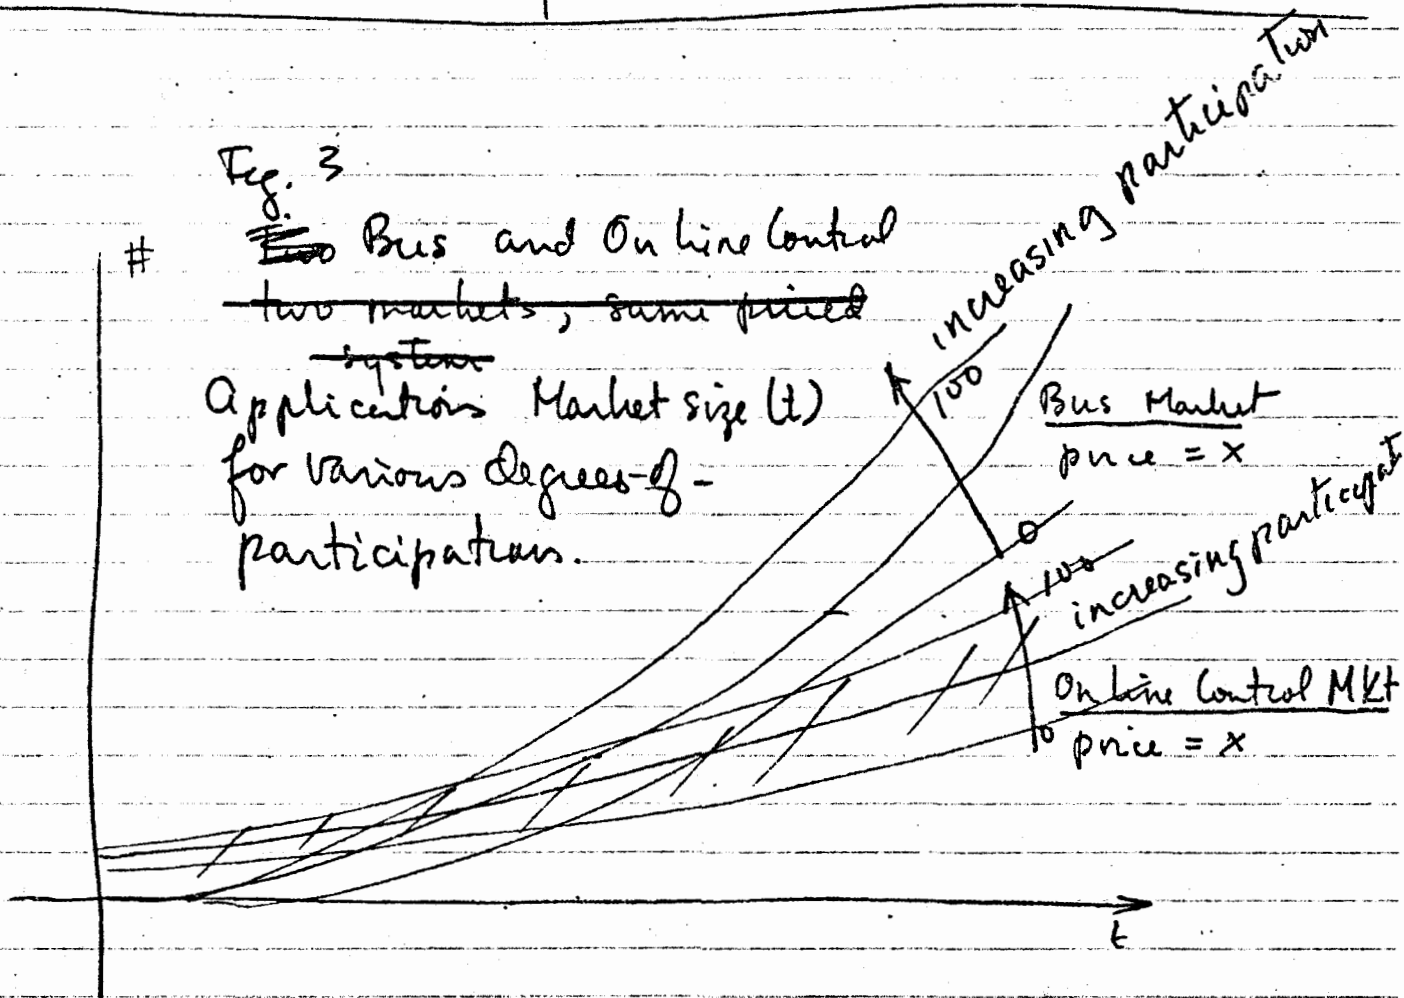 Fig. 3
# ~~Two~~ Bus and On Line Control
~~two markets, same priced~~
~~system~~
Applications Market size (t)
for various degrees-of-
participation.
increasing participation
100
Bus Market
price = x
0
100
increasing participat
On Line Control Mkt
price = x
0
t